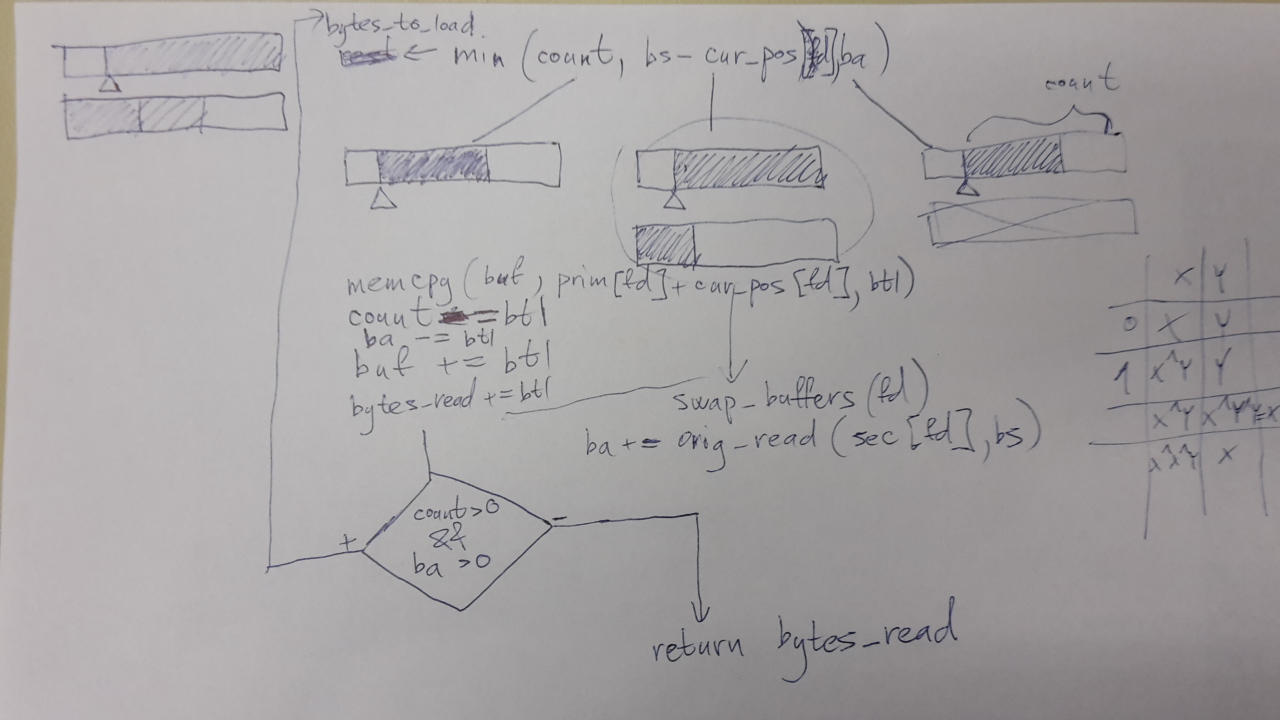 bytes_to_load
← min (count, bs - cur_pos[fd], ba)
count
memcpy (buf, prim[fd] + cur_pos[fd], btl)
count -= btl
ba -= btl
buf += btl
bytes_read += btl
swap_buffers (fd)
ba += orig_read (sec[fd], bs)
count > 0
&&
ba > 0
+
-
return bytes_read
X Y
0 X Y
1 X^Y Y
X^Y X^Y^Y=X
X^X^Y X